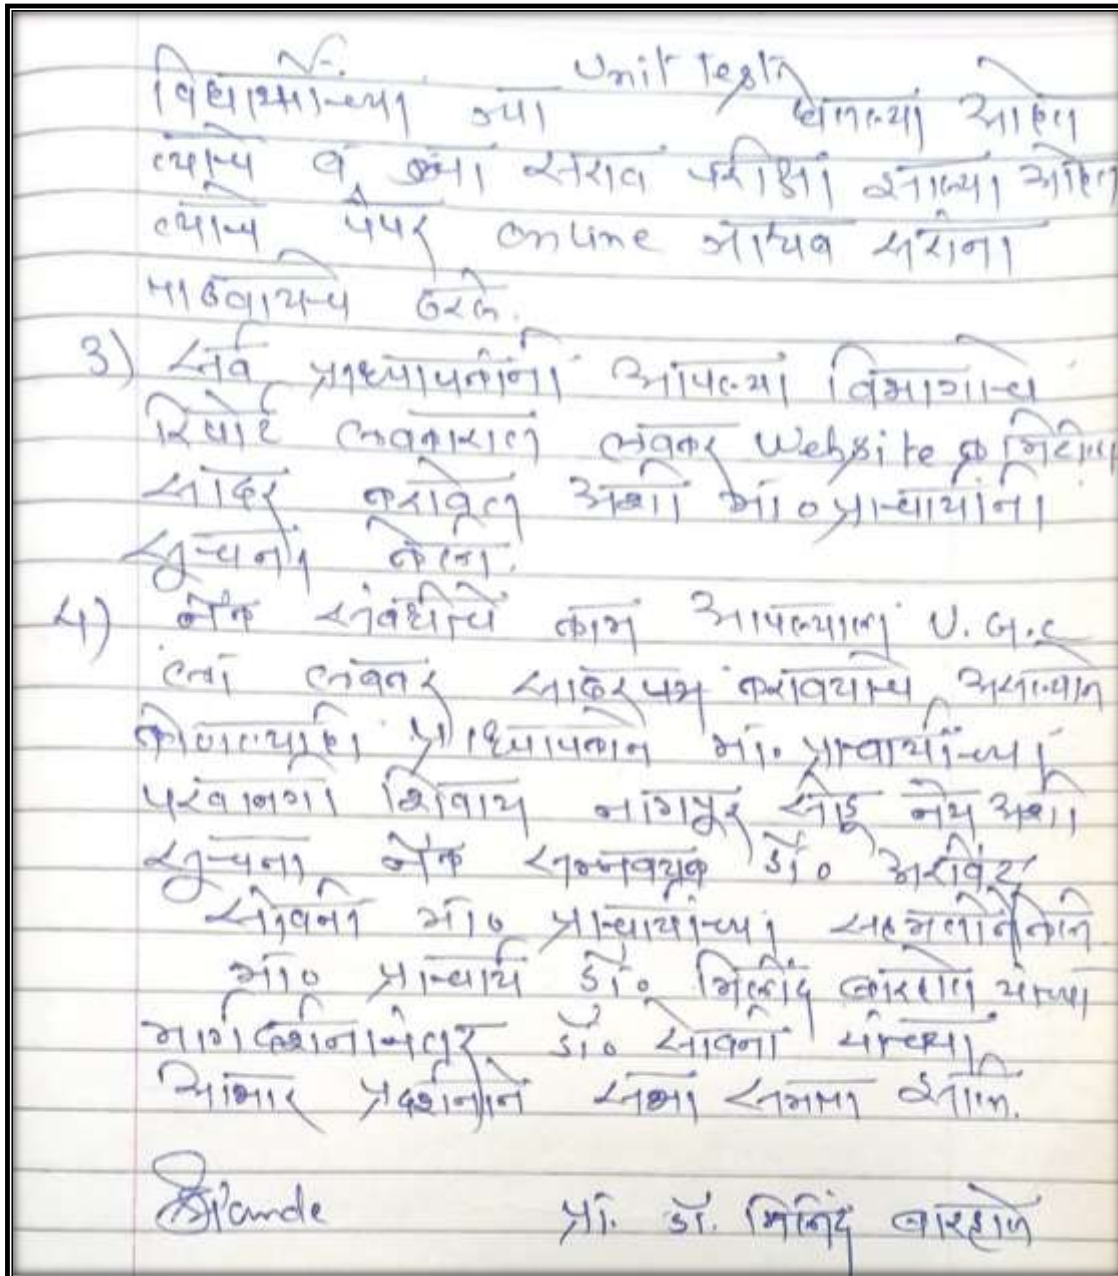 विद्यार्थ्यांच्या ज्या Unit Test घेतल्या आहेत
त्याचे व ज्या सराव परीक्षा झाल्या आहेत
त्याचे पेपर online जाधव सरांना
पाठवायचे ठरले.
3) सर्व प्राध्यापकांनी आपल्या विभागाचे
रिपोर्ट लवकरात लवकर Website
सादर करावेत अशी मा० प्राचार्यांनी
सुचना केली.
4) नॅक संबंधीचे काम आपल्याला U.G.C
ला लवकर सादर करावयाचे असल्याने
कोणत्याही प्राध्यापकाने मा. प्राचार्यांच्या
परवानगी शिवाय नागपूर सोडू नये अशी
सुचना नॅक समन्वयक डॉ० अरविंद
सोवनी मा० प्राचार्यांच्या सहमतीने केली
मा० प्राचार्य डॉ० मिलींद बारहाते यांच्या
मार्गदर्शनानंतर डॉ० सोवनी यांच्या
आभार प्रदर्शनाने सभा समाप्त झाली.
प्रा. डॉ. मिलिंद बारहाते